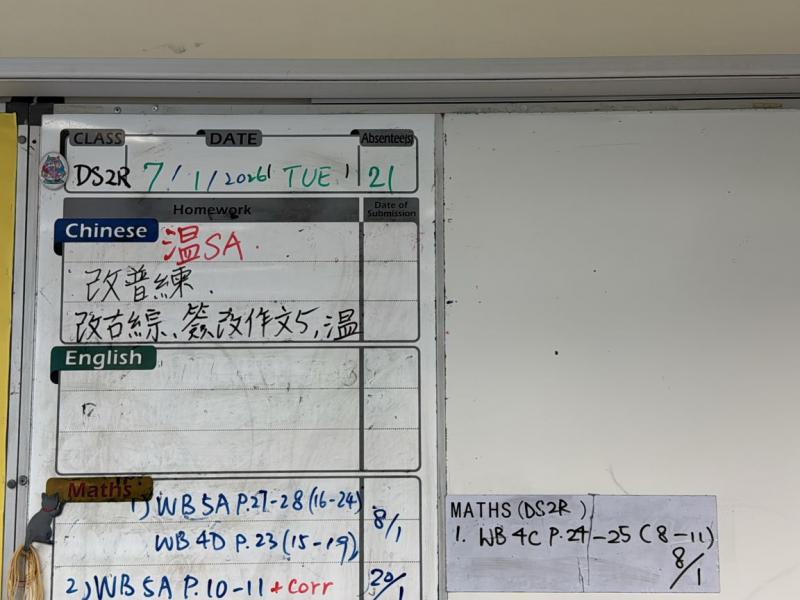 CLASS DATE Absentee(s)
DS2R 7/1/2026 TUE 21
Homework Date of Submission
Chinese
温SA.
改普練.
改古綜、簽改作文5,温
English
Maths
1) WB 5A P.27-28 (16-24)
WB 4D P.23 (15-19) 8/1
2) WB 5A P.10-11 + corr 20/1
MATHS (DS2R )
1. WB 4C P.24-25 (8-11)
8/1